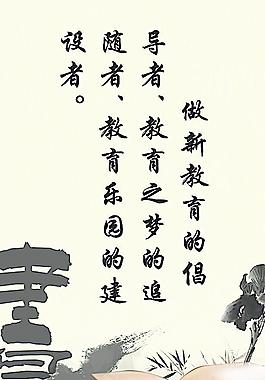 做新教育的倡
导者、教育之梦的追
随者、教育乐园的建
设者。